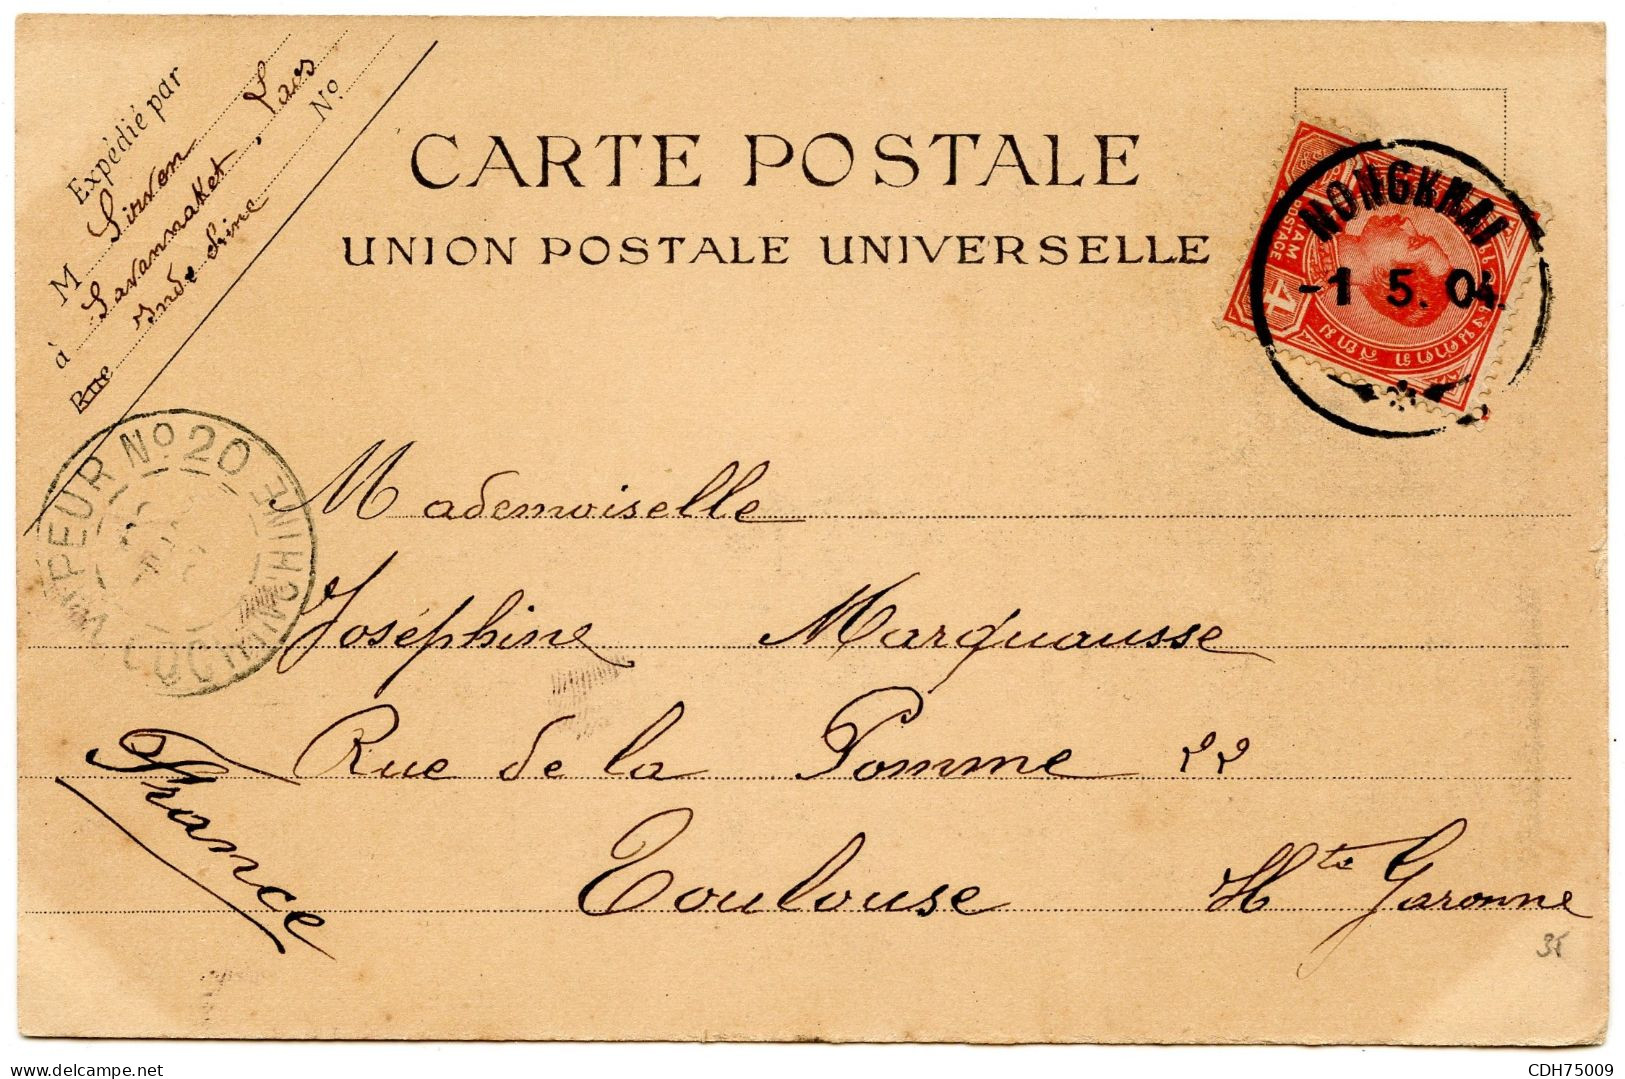 Expédié par
M Sirven
à Savannaket, Laos
Indo Chine
Rue
No
CARTE POSTALE
UNION POSTALE UNIVERSELLE
NONGKHAI
-1 5. 04.
SIAM
POSTAGE
4
VAPEUR No 20
COCHINCHINE
Mademoiselle
Joséphine Marquausse
Rue de la Pomme 22
Toulouse Hte Garonne
France
35
CDH75009